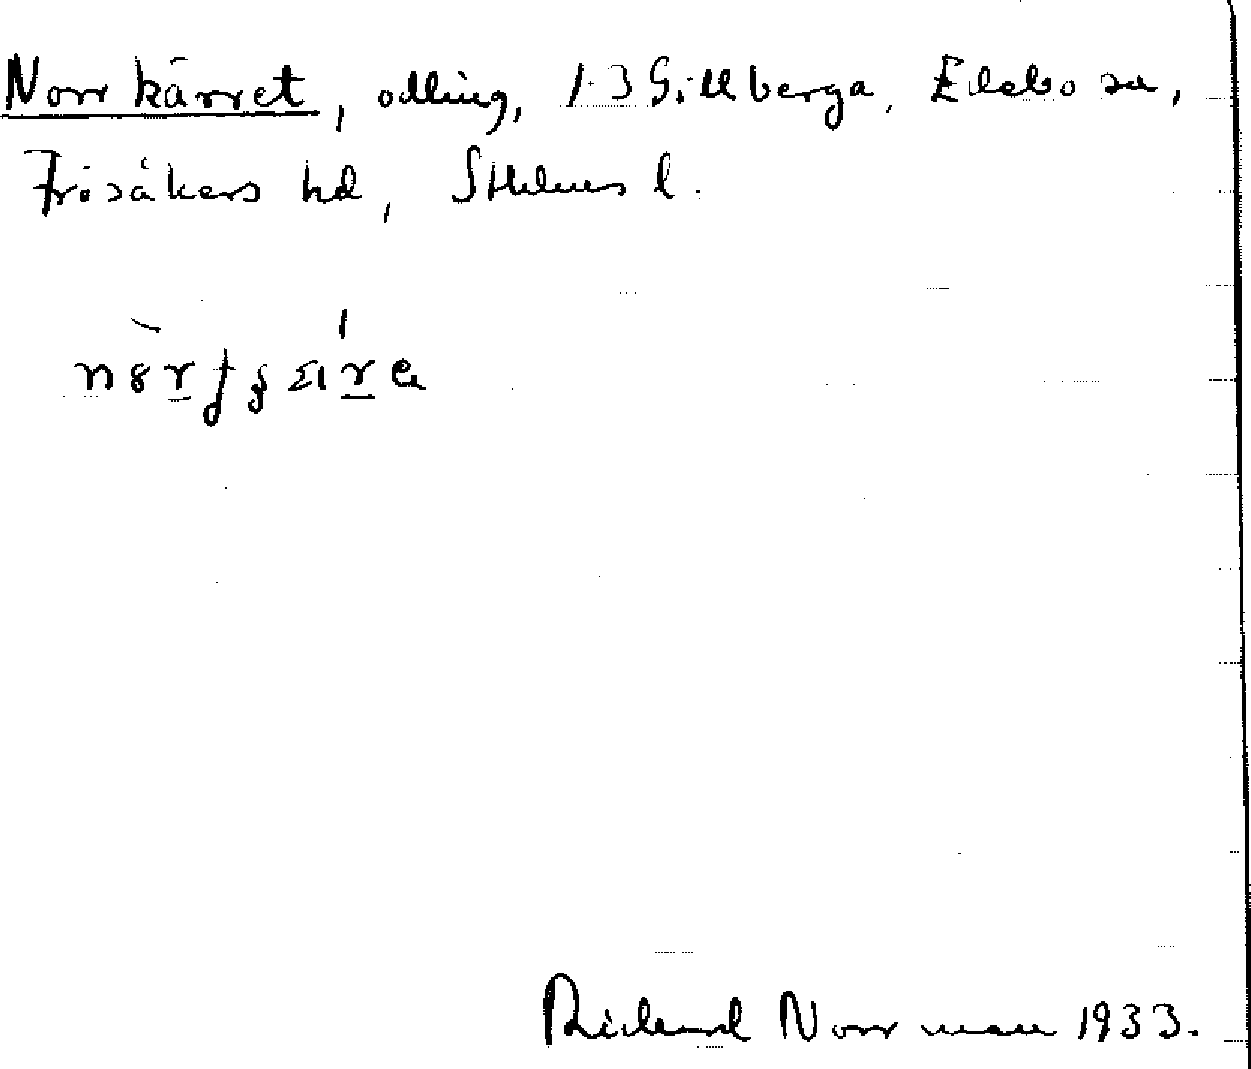 Norrkärret, odling, 1-3 Gillberga, Edebo sn,
Frösåkers hd, Sthlms l.
Richard Norrman 1933.